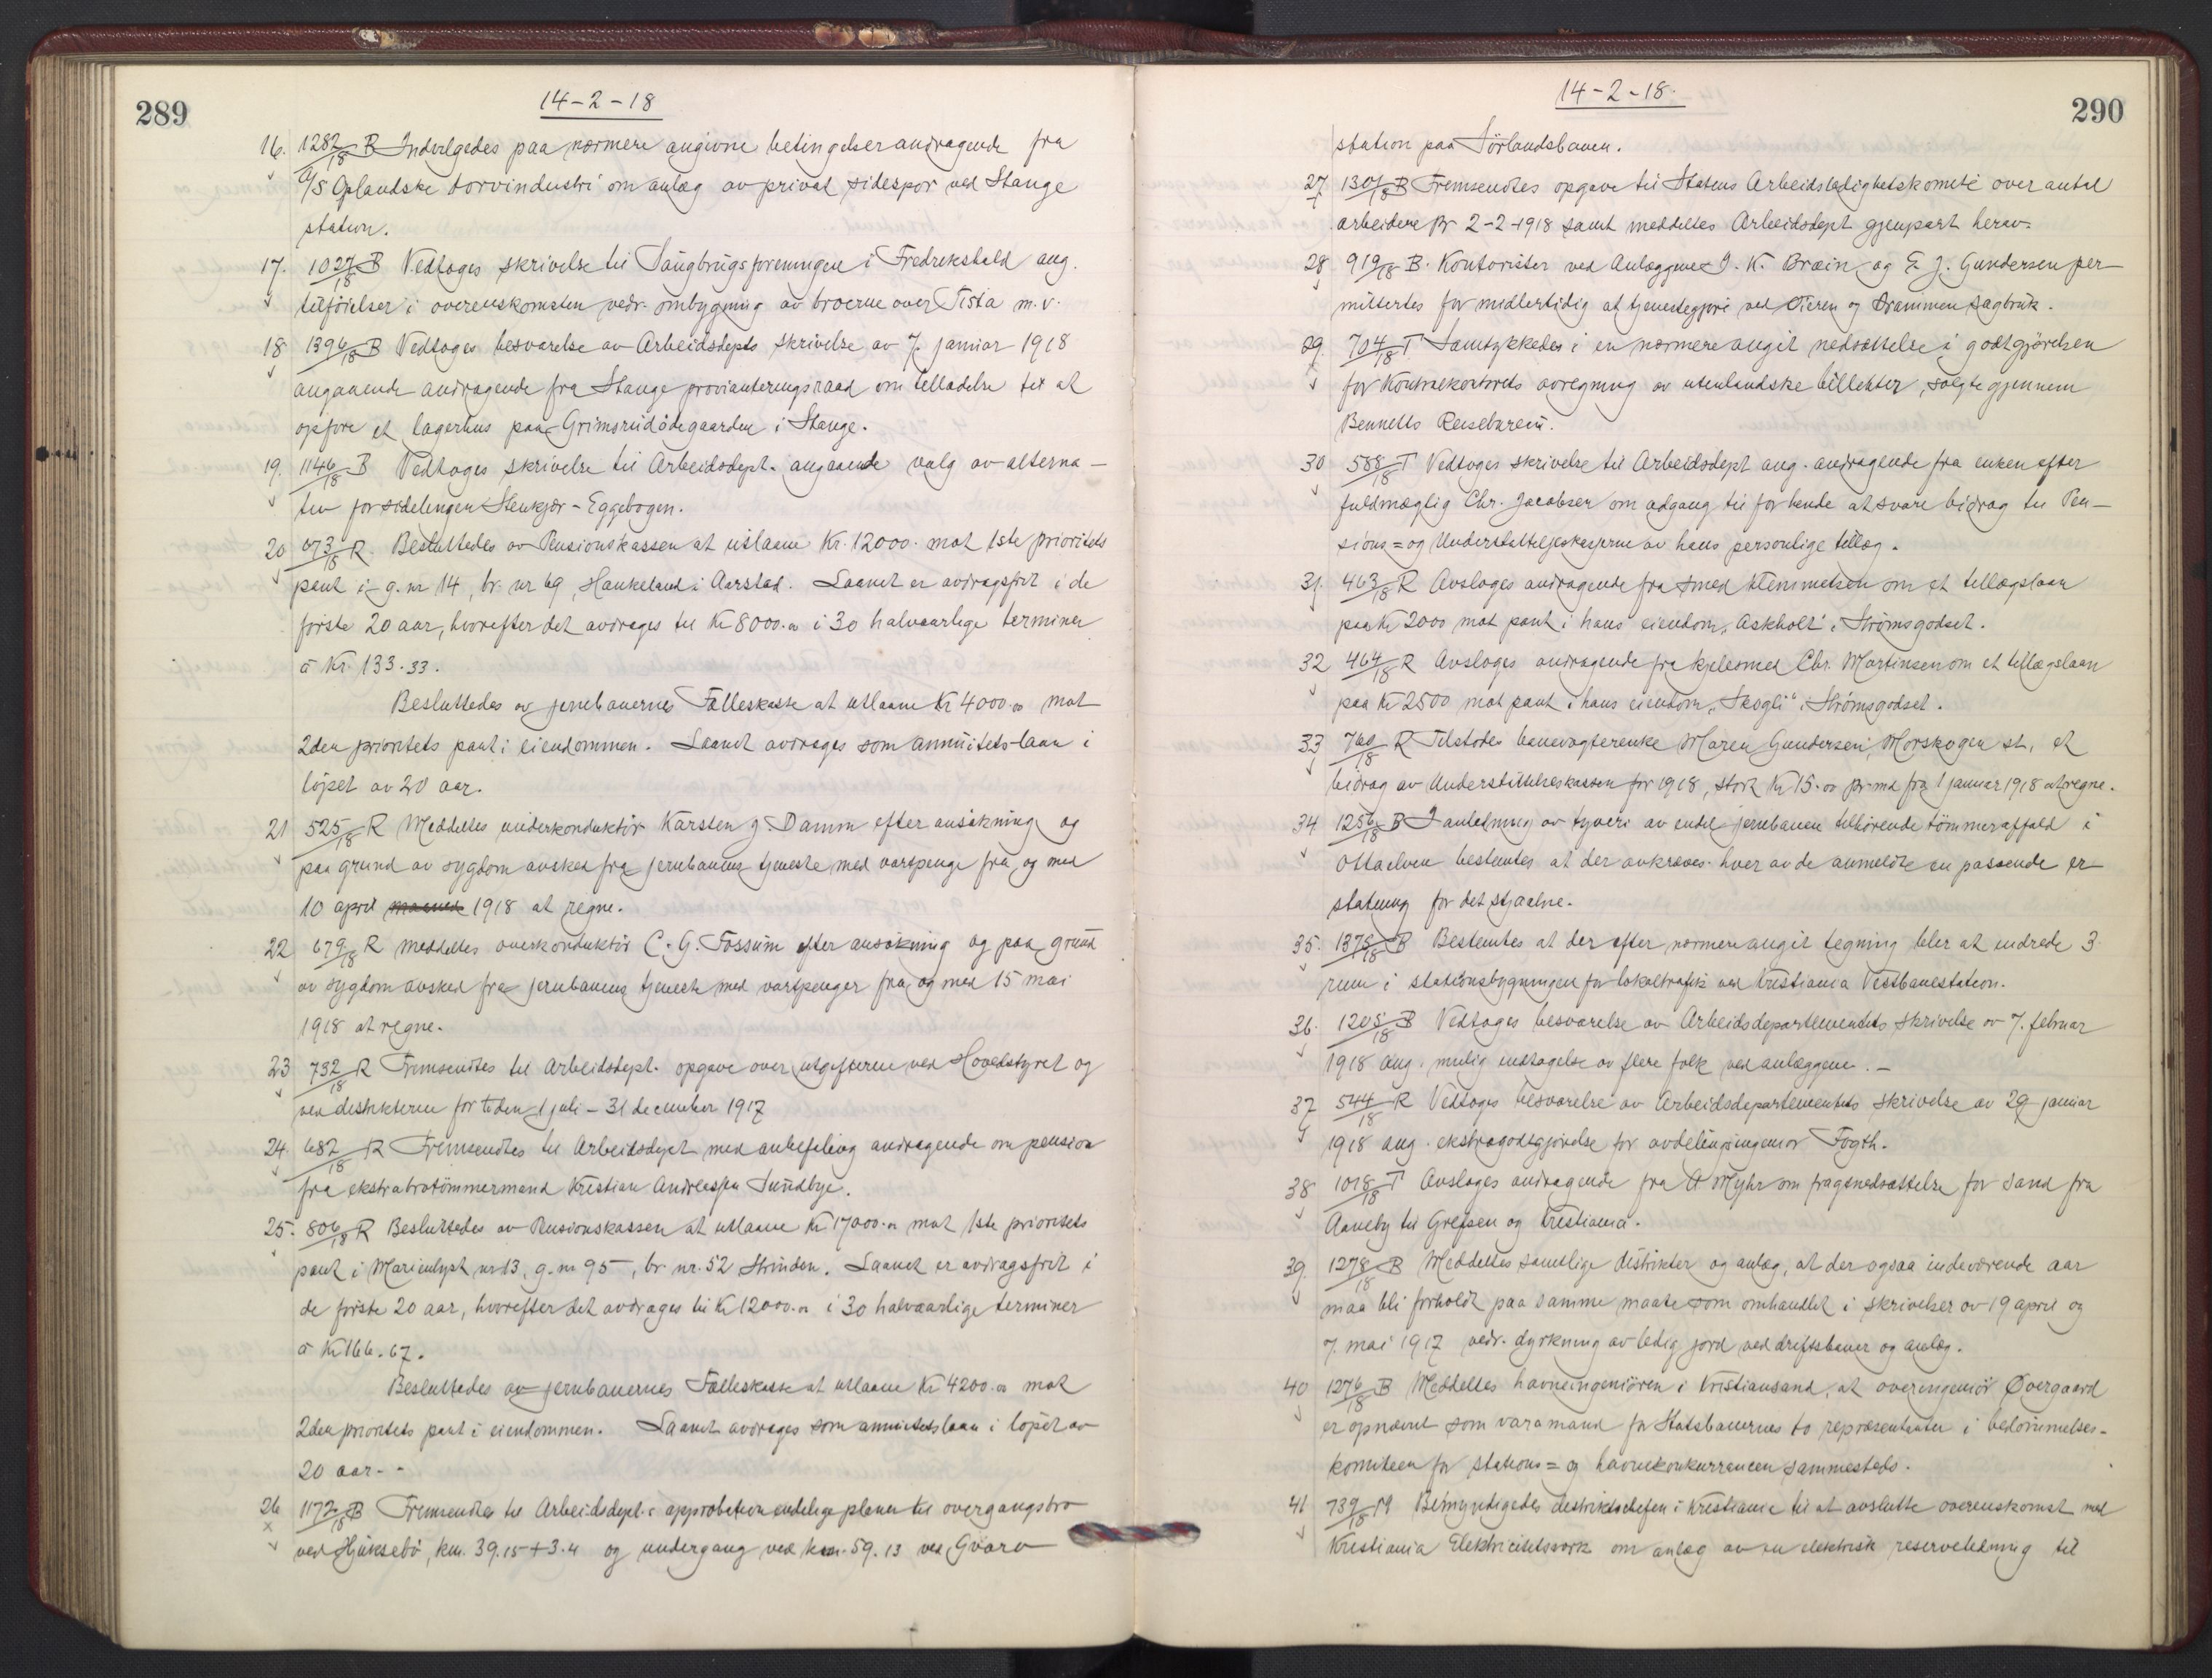 289
14-2-18
16. 1282/18 B Indvilgedes paa nærmere angivne betingelser andragende fra
A/S Oplandske torvindustri om anlæg av privat sidespor ved Stange
station.
17. 1027/18 B Vedtoges skrivelse til Saugbrugsforeningen i Fredrikshald ang.
tilføielser i overenskomsten vedr. ombygning av broerne over Tista m.v.
18 1396/18 B Vedtoges besvarelse av Arbeidsdepts skrivelse av 7. januar 1918
angaaende andragende fra Stange provianteringsraad om tilladelse til at
opføre et lagerhus paa Grimsrudødegaarden i Stange.
19. 1146/18 B Vedtoges skrivelse til Arbeidsdept. angaaende valg av alterna-
tiv for sidelinjen Stenkjær-Eggebogen.
20 073/18 R. Besluttedes av Pensionskassen at utlaane Kr. 12000. mot 1ste prioritets
pant i g.nr 14, br. nr 69, Haukeland i Aarstad. Laanet er avdragsfrit i de
første 20 aar, hvorefter det avdrages til Kr 8000.00 i 30 halvaarlige terminer
à Kr. 133.33.
Besluttedes av jernbanernes Fælleskasse at utlaane Kr 4000.00 mot
2den prioritets pant i eiendommen. Laanet avdrages som annuitets-laan i
løpet av 20 aar.
21 525/18 R Meddeltes underkonduktør Karsten J. Damm efter ansøkning og
paa grund av sygdom avsked fra jernbanens tjeneste med vartpenge fra og med
10 april 1918 at regne.
22 679/18 R Meddeltes overkonduktør C. G. Fossum efter ansøkning og paa grund
av sygdom avsked fra jernbanens tjeneste med vartpenger fra og med 15 mai
1918 at regne.
23 732/18 R Fremsendtes til Arbeidsdept. opgave over utgifterne ved Hovedstyret og
ved distrikterne for tiden 1 juli - 31 december 1917
24. 682/18 R Fremsendtes til Arbeidsdept med anbefaling andragende om pension
fra ekstrabrotømmermand Kristian Andreassen Sundbye.
25. 806/18 R Besluttedes av Pensionskassen at utlaane Kr 17000.00 mot 1ste prioritets
pant i Marienlyst nr 13, g.nr 95, br. nr. 52 Strinden. Laanet er avdragsfrit i
de første 20 aar, hvorefter det avdrages til Kr 12000.00 i 30 halvaarlige terminer
à Kr 166.67.
Besluttedes av jernbanernes Fælleskasse at utlaane Kr 4200.00 mot
2den prioritets pant i eiendommen. Laanet avdrages som annuitetslaan i løpet av
20 aar.-
26 1172/18 B Fremsendtes til Arbeidsdept. i approbation endelige planer til overgangsbro
ved Hjuksebø, km. 39.15+3.4 og undergang ved km. 59.13 ved Gvarv
14-2-18.
290
station paa Sørlandsbanen.
27 1301/18 B Fremsendtes opgave til Statens Arbeidsledighetskomité over antal
arbeidere pr 2-2-1918 samt meddeltes Arbeidsdept gjenpart herav.
28 919/18 B. Kontorister ved Anlæggene J. K. Bræin og E. J. Gundersen per-
mittertes for midlertidig at tjenestegjøre ved Øieren og Drammen sagbruk.
29. 704/18 T Samtykkedes i en nærmere angit nedsættelse i godtgjørelsen
for Kontrolkontorets avregning av utenlandske billetter, solgte gjennem
Bennetts Reisebureau.
30 588/18 T Vedtoges skrivelse til Arbeidsdept ang. andragende fra enken efter
fuldmægtig Chr. Jacobsen om adgang til for hende at svare bidrag til Pen-
sions= og Understøttelseskasserne av hans personlige tillæg.
31. 463/18 R Avsloges andragende fra smed Klemmetsen om et tillægslaan
paa Kr 2000 mot pant i hans eiendom, "Askholt" i Strømsgodset.
32 464/18 R Avsloges andragende fra kjelesmed Chr. Martinsen om et tillægslaan
paa Kr 2500 mot pant i hans eiendom, "Skogli" i Strømsgodset.
33 760/18 R Tilstodes banevogterenke Maren Gundersen, Morskogen st, et
bidrag av Understøttelseskassen for 1918, stort Kr 15.00 pr. md fra 1 januar 1918 at regne.
34 1256/18 B I anledning av tyveri av endel jernbanen tilhørende tømmeraffald i
Ottaelven bestemtes at der avkræves hver av de anmeldte en passende er-
statning for det stjaalne.
35. 1375/18 B Bestemtes at der efter nærmere angit tegning blir at indrede 3
rum i stationsbygningen for lokaltrafik ved Kristiania Vestbanestation.
36. 1205/18 B Vedtoges besvarelse av Arbeidsdepartementets skrivelse av 7. februar
1918 ang. mulig indtagelse av flere folk ved anlæggene.-
37 544/18 R Vedtoges besvarelse av Arbeidsdepartementets skrivelse av 29 januar
1918 ang. ekstragodtgjørelse for avdelingsingeniør Fogth.
38 1018/18 T Avsloges andragende fra A Myhr om fragtnedsættelse for sand fra
Aaneby til Grefsen og Kristiania.
39. 1278/18 B Meddeltes samtlige distrikter og anlæg, at der ogsaa indeværende aar
maa bli forholdt paa samme maate som omhandlet i skrivelser av 19 april og
7. mai 1917 vedr. dyrkning av ledig jord ved driftsbaner og anlæg.
40 1276/18 B Meddeltes havneingeniøren i Kristiansand, at overingeniør Øvergaard
er opnævnt som varamand for Statsbanernes to repræsentanter i bedømmelses-
komiteen for stations= og havnekonkurrancen sammesteds.
41 739/18 M Bemyndigedes distriktschefen i Kristiania til at avslutte overenskomst med
Kristiania Elektricitetsverk om anlæg av en elektrisk reserveledning til